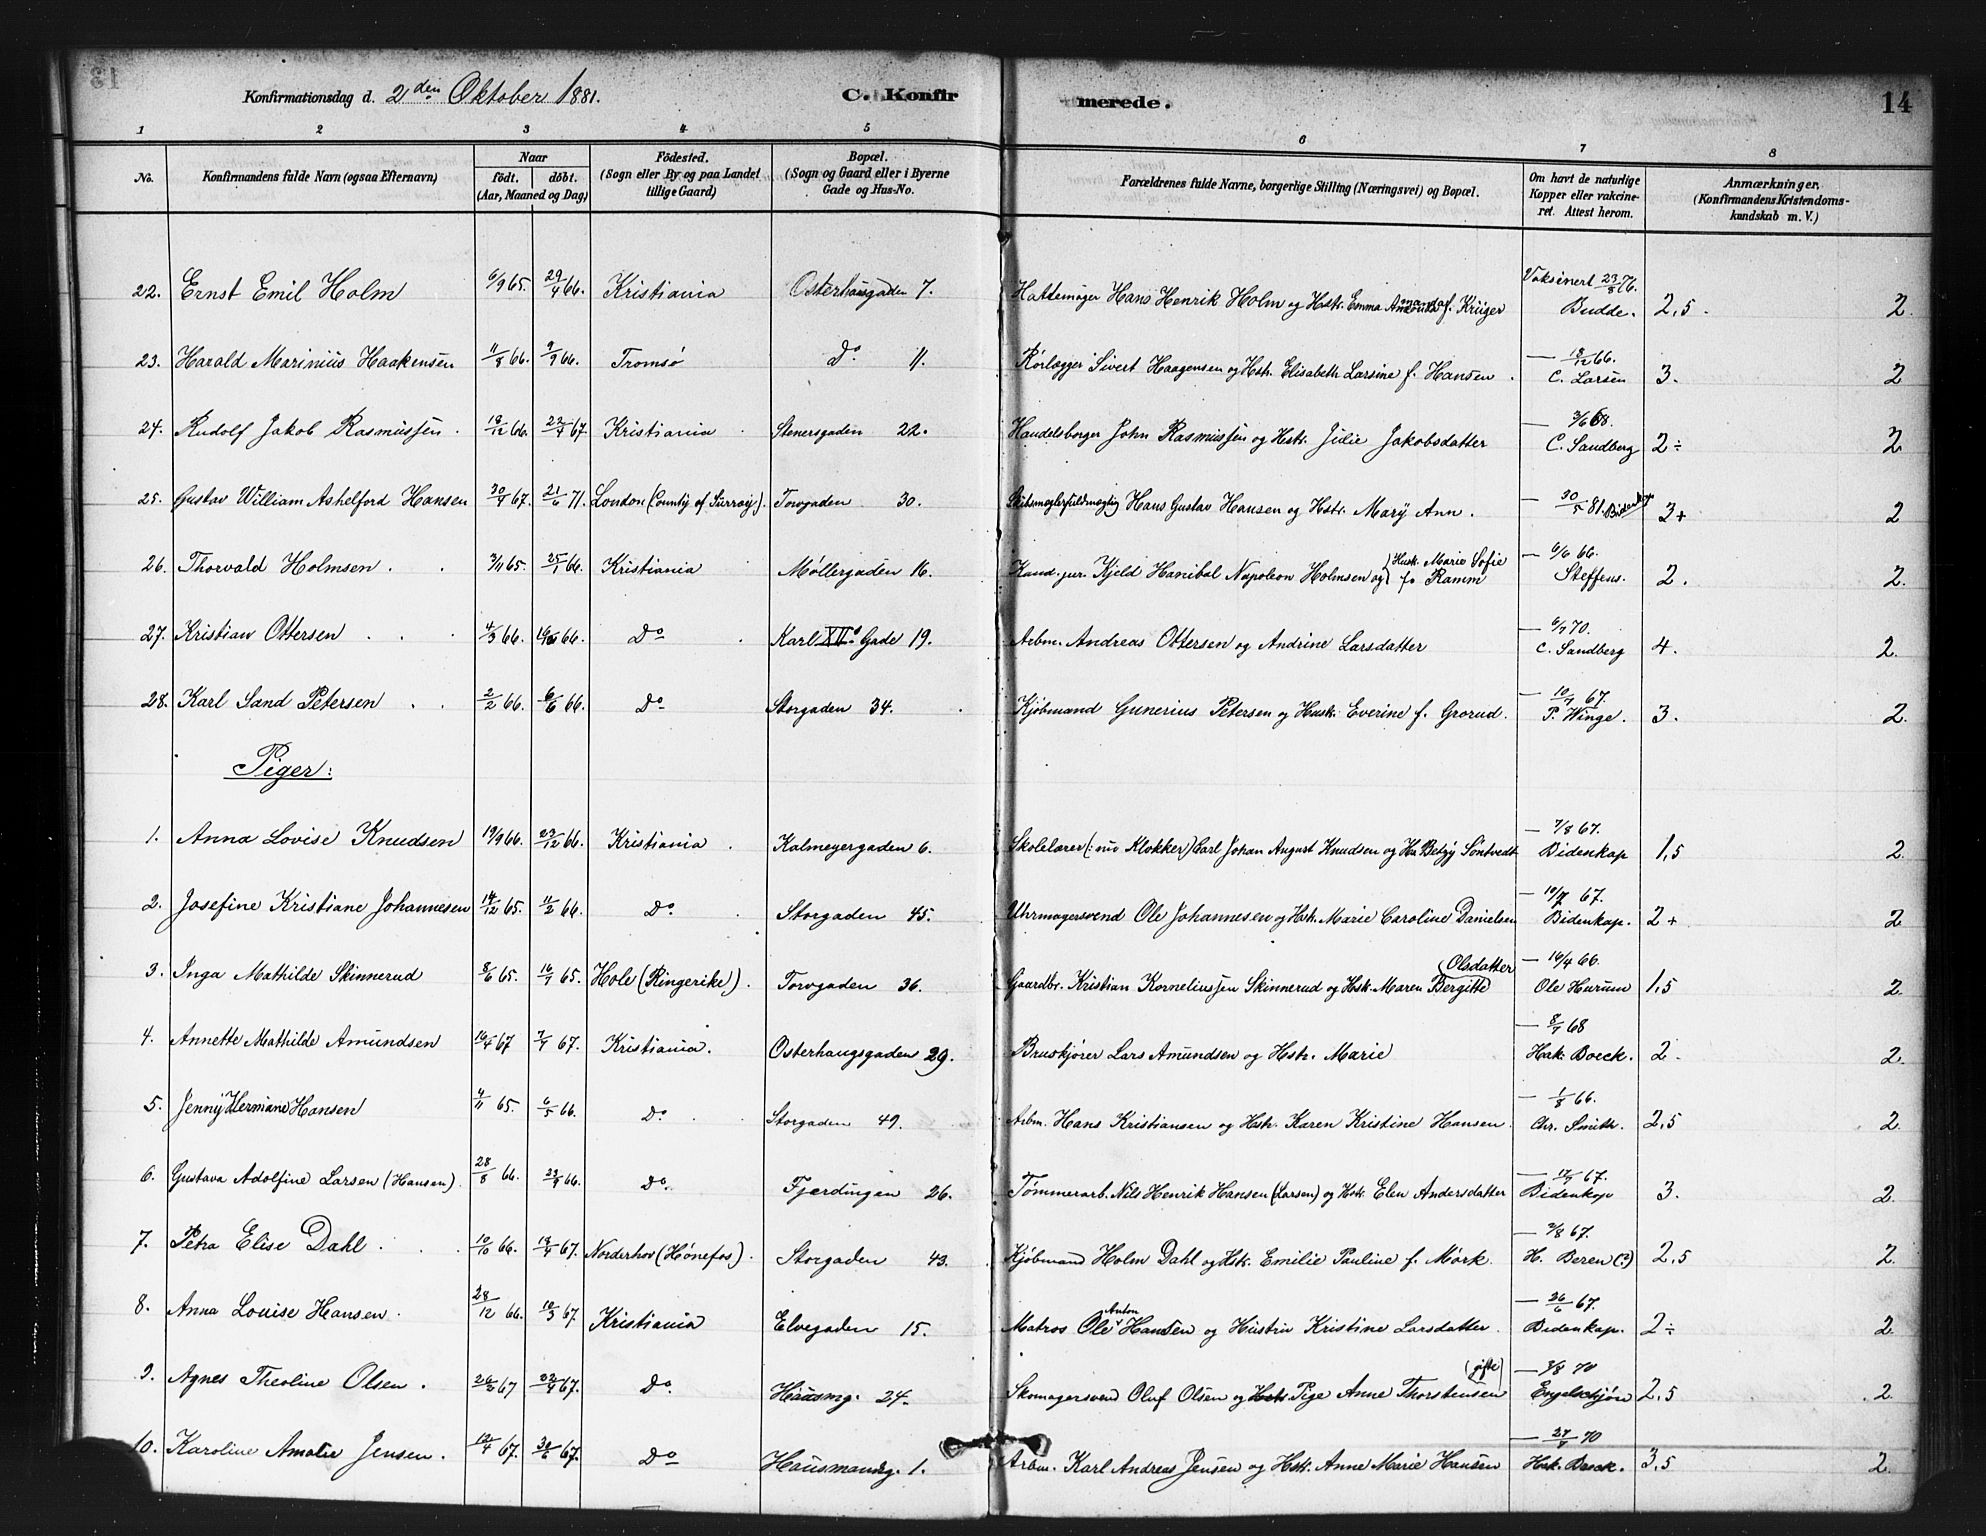 Konfirmationsdag d. 2den Oktober 1881.
C. Konfir merede. 14
1 2 3 4 5 6 7 8
No. Konfirmandens fulde Navn (ogsaa Efternavn) Naar födt. döbt. (Aar, Maaned og Dag) Födested. (Sogn eller By og paa Landet tillige Gaard) Bopæl. (Sogn og Gaard eller i Byerne Gade og Hus-No. Forældrenes fulde Navne, borgerlige Stilling (Næringsvei) og Bopæl. Om havt de naturlige Kopper eller vakcineret. Attest herom. Anmærkninger. (Konfirmandens Kristendomskundskab m. V.)
22. Ernst Emil Holm 6/9 65. 29/4 66. Kristiania Osterhausgaden 7. Hattemager Hans Henrik Holm og Hstr. Emma Amanda f. Krüger Vaksinert 23/8 76. Budde. 2,5. 2.
23. Harald Marinius Haakensen 11/8 66. 9/9 66. Tromsø Do 11. Rørlægger Sivert Haagensen og Hstr. Elisabeth Larsine f. Hansen. — 18/12 66. C. Larsen 3. 2
24. Rudolf Jakob Rasmussen. 19/12 66. 22/4 67. Kristiania Stenersgaden 22. Handelsborger John Rasmussen og Hstr. Julie Jakobsdatter — 3/6 68. C. Sandberg 2÷ 2
25. Gustav William Ashelford Hansen 30/4 67. 21/6 71. London (County of Surray). Torvgaden 30. Skibsmæglerfuldmægtig Hans Gustav Hansen og Hstr. Mary Ann. — 30/5 81. Bidenkap 3+ 2
26. Thorvald Holmsen 3/11 65. 25/1 66. Kristiania Møllergaden 16. Kand. jur. Kjeld Hanibal Napoleon Holmsen og Hust. Marie Sofie f. Ramm — 6/6 66. Steffens. 2. 2.
27. Kristian Ottersen 4/3 66. 66. Do Karl XII. Gade 19. Arbm. Andreas Ottersen og Andrine Larsdatter — 6/7 70. C. Sandberg 4. 2.
28. Karl Sand Petersen 2/2 66. 6/6 66. Do Storgaden 34. Kjøbmand Gunerius Petersen og Hustr. Everine f. Grorud. — 10/7 67. P. Winge. 3. 2.
Piger:
1. Anna Lovise Knudsen 19/9 66. 23/12 66. Kristiania Kalmeyergaden 6. Skolelærer (: nu Klokker) Carl Johan August Knudsen og Hu. Betzy Sontvedt — 7/8 67. Bidenkap 1,5 2.
2. Josefine Kristiane Johannesen 14/12 65. 11/2 66. Do. Storgaden 45. Uhrmagersvend Ole Johannesen og Hstr. Marie Caroline Danielsen — 10/7 67. Bidenkap. 2+ 2
3. Inga Mathilde Skinnerud 8/6 65. 16/7 65. Hole (Ringerike). Torvgaden 36. Gaardbr. Kristian Korneliussen Skinnerud og Hstr. Maren Bergitte Olsdatter — 16/4 66. Ole Hurum 1,5 2.
4. Annette Mathilde Amundsen 16/4 67 7/7 67. Kristiania. Osterhaugsgaden 29. Bruskjører Lars Amundsen og Hstr. Marie — 8/7 68 Hak. Boeck. 2 2.
5. Jenny Hermine Hansen 4/11 65. 6/5 66. Do. Storgaden 49. Arbm. Hans Kristiansen og Hstr. Karen Kristine Hansen. — 1/8 66. Chr. Smith. 2,5 2.
6. Gustava Adolfine Larsen (Hansen). 28/8 66. 23/9 66. Do. Fjerdingen 26. Tømmerarb. Nils Henrik Hansen (Larsen) og Hstr. Elen Andersdatter — 17/7 67. Bidenkap 3. 2.
7. Petra Elise Dahl 10/10 66. 19/4 67. Norderhov (Hønefos). Storgaden 43. Kjøbmand Holm Dahl og Hstr. Emilie Pauline f. Mørk. — 7/8 67. H. Beren (?) 2,5 2.
8. Anna Louise Hansen. 28/12 66. 10/3 67. Kristiania Elvegaden 15. Matros Ole Anton Hansen og Hustru Kristine Larsdatter. — 26/6 67. Bidenkap. 2÷ 2.
9. Agnes Theoline Olsen. 26/2 67 22/4 67. Do. Hausmg. 24. Skomagersvend Oluf Olsen og Pige Anne Thorstensen (gifte) — 3/8 70 Engelschjøn 2,5 2.
10. Karoline Amalie Jensen. 12/4 67. 30/6 67. Do Hausmandsg. 1. Arbm. Karl Andreas Jensen og Hstr. Anne Marie Hansen — 27/7 70 Hak. Boeck. 3,5 2.